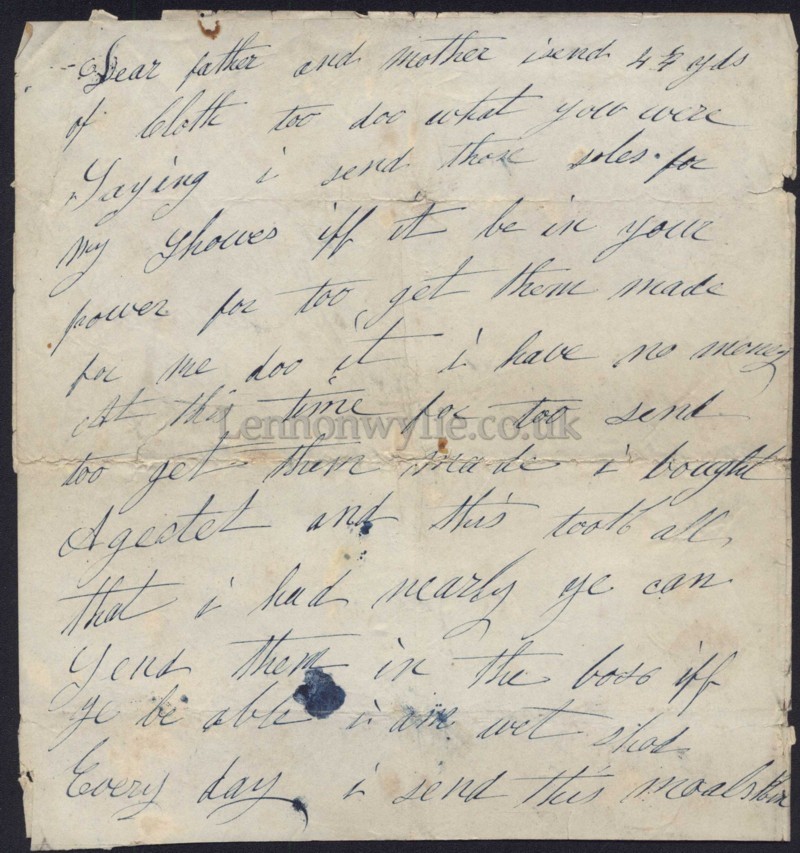 Dear father and mother i send 4¾ yds
of Cloth too doo what you were
Saying i send those soles for
my Showes iff it be in your
power for too get them made
for me doo it i have no money
At this time for too send
Lennonwylie.co.uk
too get them made i bought
this took all
that i had nearly ye can
Send them in the box iff
ye be able i am wet shod
Every day i send this